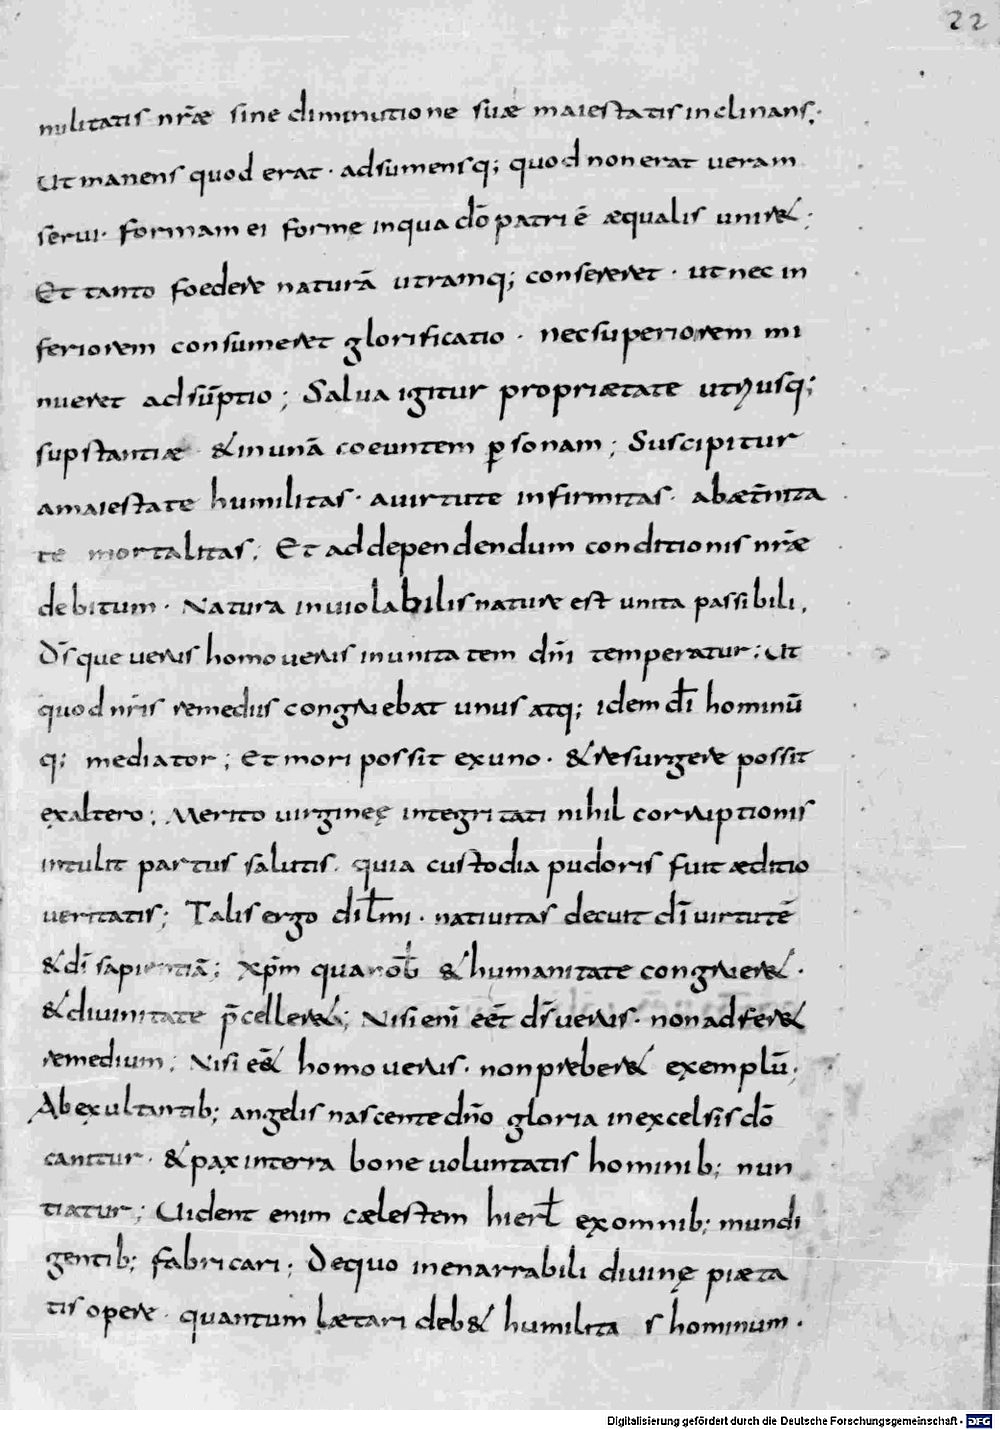 22
militatis nr̄æ sine diminutione suæ maiestatis inclinans;
Ut manens quod erat · adsumensq; quod non erat ueram
serui · formam ei forme inqua dō patri ē æqualis unir&;
Et tanto foedere naturā utramq; consereret · ut nec in
feriorem consumeret glorificatio · nec superiorem mi
nueret adsūptio; Salua igitur propriætate utriusq;
supstantiæ & in unā coeuntem ꝑsonam; Suscipitur
amaiestate humilitas · auirtute infirmitas · abæt̄nita
te mortalitas; Et addependendum conditionis nr̄æ
debitum · Natura inuiolabilis nature est unita passibili,
Ds̄que uerus homo uerus inunitatem dn̄i temperatur; Ut
quod nr̄is remediis congruebat unus atq; idem dī hominū
q; mediator; Et mori possit ex uno · & resurgere possit
ex altero; Merito uirgineę integritati nihil corruptionis
intulit partus salutis · quia custodia pudoris fuit æditio
ueritatis; Talis ergo dil̄mi · natiuitas decuit dī uirtutē
& dī sapientiā; xp̄m quanob̄ & humanitate congruer& ·
& diuinitate p̄celler&; Nisi enī eēt ds̄ uerus · non adfer&
remedium; Nisi eē& homo uerus · non preber& exemplū;
Ab exultantib; angelis nascente dn̄o gloria in excelsis dō
canitur · & pax in terra bone uoluntatis hominib; nun
tiatur; Uident enim cælestem hierl̄ ex omnib; mundi
gentib; fabricari; De quo inenarrabili diuinę piæta
tis opere · quantum lætari deb& humilita s hominum ·
Digitalisierung gefördert durch die Deutsche Forschungsgemeinschaft - DFG